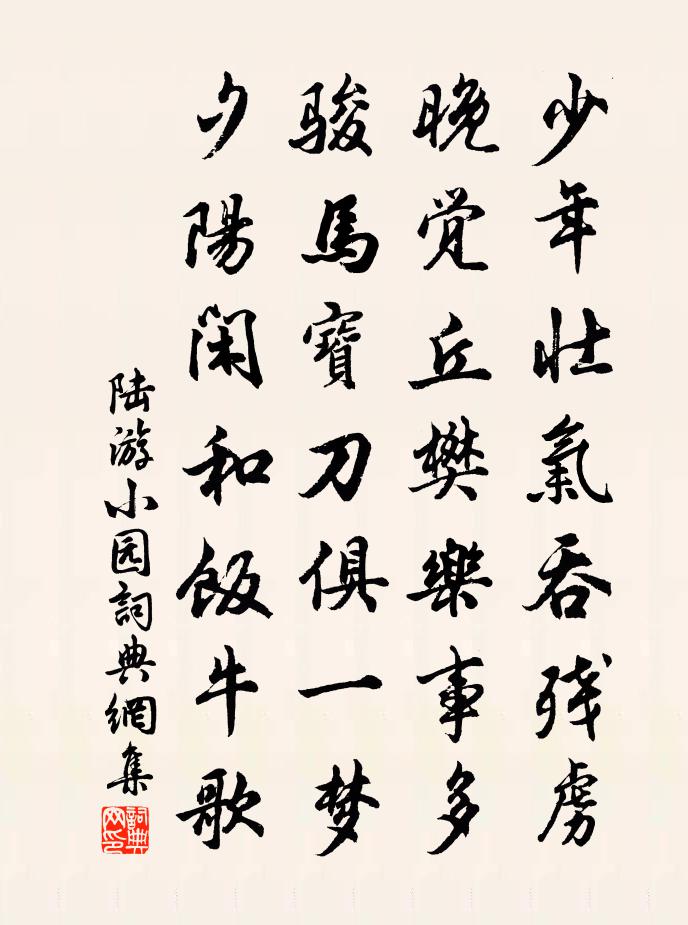 少年壮氣吞残虜
晚觉丘樊樂事多
骏馬寶刀俱一梦
夕陽闲和飯牛歌
陆游小园詞典網集
詞典網印